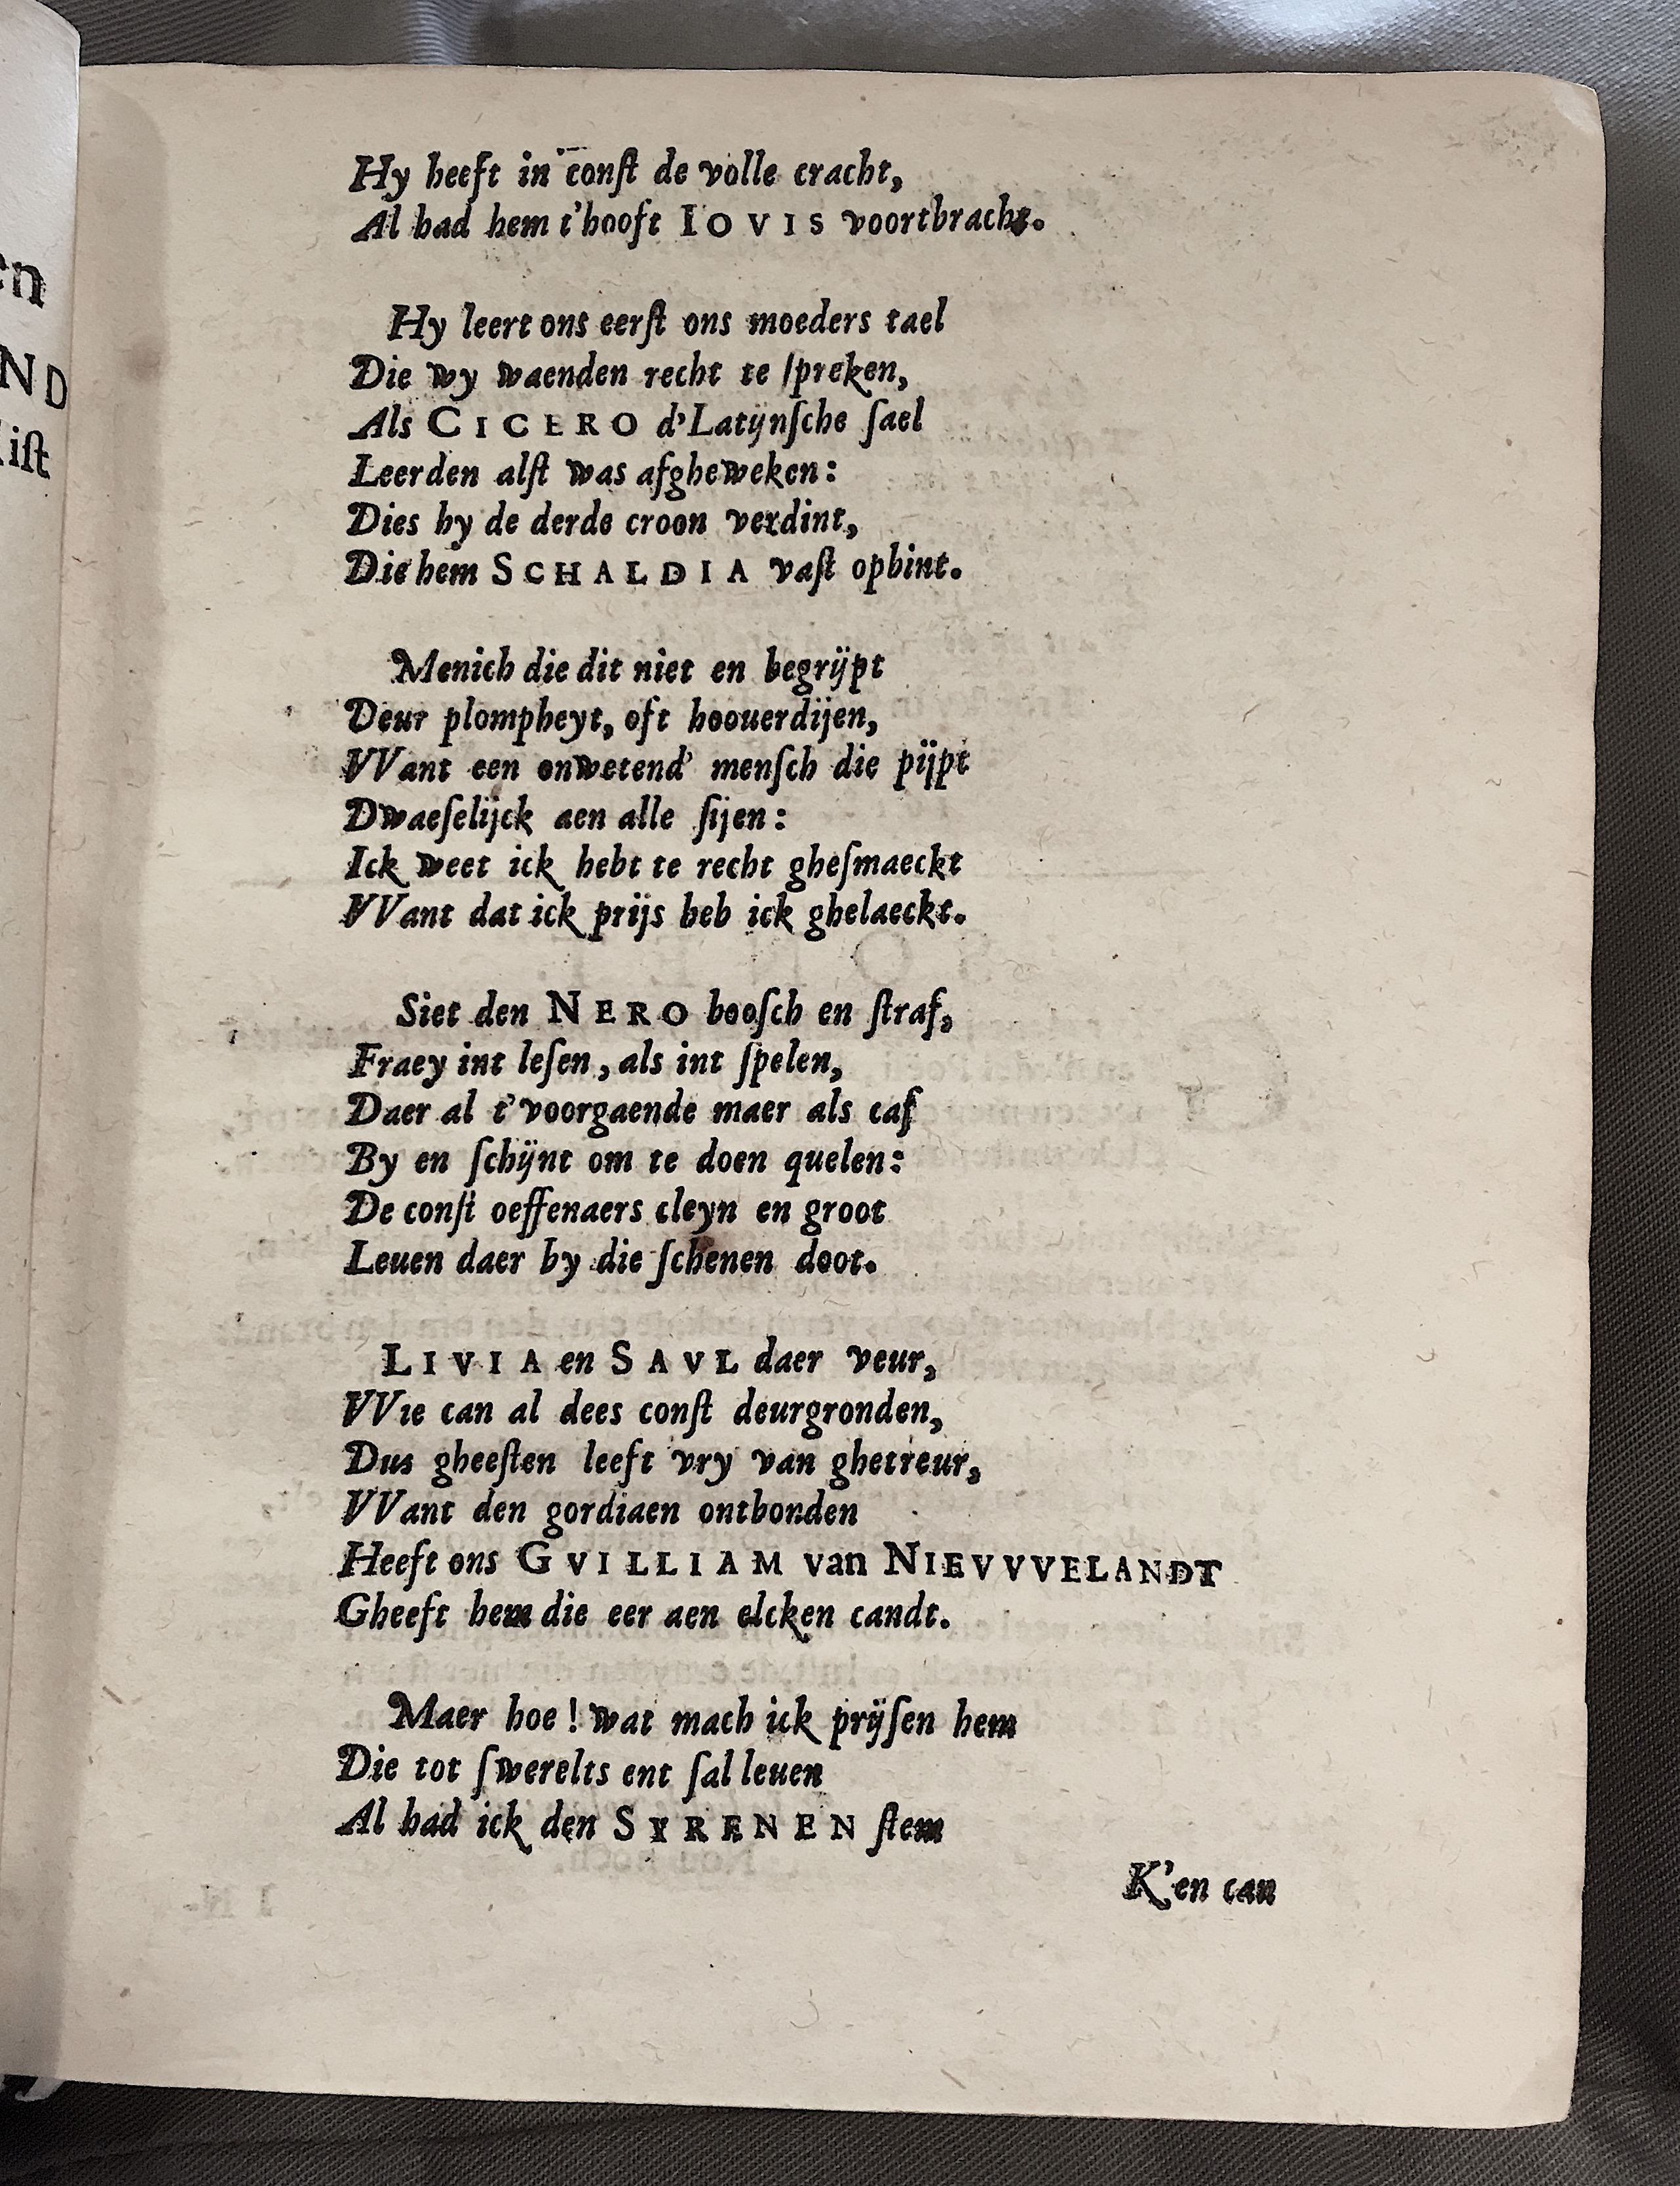 Hy heeft in conſt de volle cracht,
Al had hem t'hooft IOVIS voortbracht.
Hy leert ons eerſt ons moeders tael
Die wy waenden recht te ſpreken,
Als CICERO d'Latijnſche ſael
Leerden alſt was afgheweken:
Dies hy de derde croon verdint,
Die hem SCHALDIA vaſt opbint.
Menich die dit niet en begrijpt
Deur plompheyt, oft hoouerdijen,
VVant een onwetend' menſch die pijpt
Dwaeſelijck aen alle ſijen:
Ick weet ick hebt te recht gheſmaeckt
VVant dat ick prijs heb ick ghelaeckt.
Siet den NERO booſch en ſtraf,
Fraey int leſen, als int ſpelen,
Daer al t'voorgaende maer als caf
By en ſchijnt om te doen quelen:
De conſt oeffenaers cleyn en groot
Leuen daer by die ſchenen doot.
LIVIA en SAVL daer veur,
VVie can al dees conſt deurgronden,
Dus gheeſten leeft vry van ghetreur,
VVant den gordiaen ontbonden
Heeft ons GVILLIAM van NIEVVVELANDT
Gheeft hem die eer aen elcken candt.
Maer hoe! wat mach ick prijſen hem
Die tot ſwerelts ent ſal leuen
Al had ick den SYRENEN ſtem
K'en can